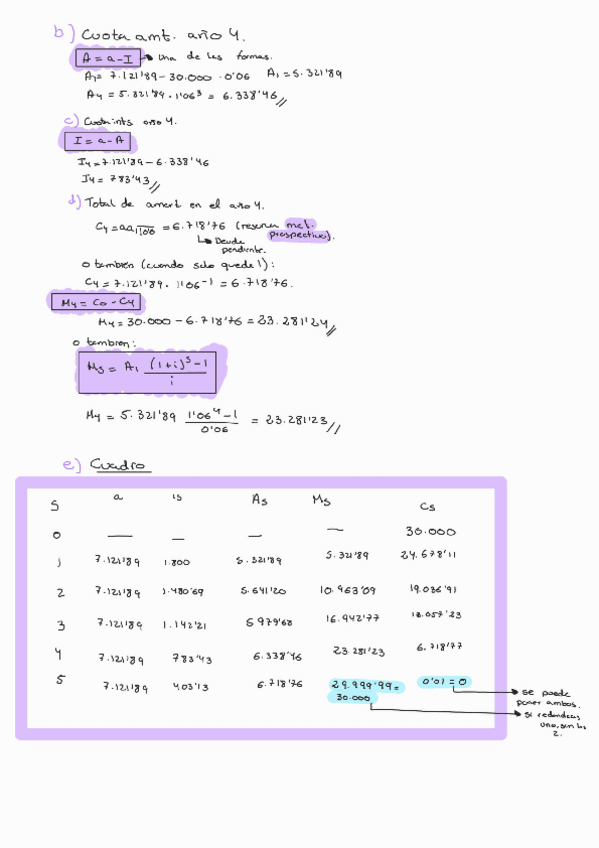 b) Cuota amt. año 4.
A = a - I → una de las formas.
A₁ = 7.121'89 - 30.000 · 0'06 A₁ = 5.321'89
A₄ = 5.321'89 · 1'06³ = 6.338'46 //
c) Cuota ints año 4.
I = a - A
I₄ = 7.121'89 - 6.338'46
I₄ = 783'43 //
d) Total de amort en el año 4.
C₄ = a a 1 0'06 = 6.718'76 (reserva met. prospectivo).
↳ Deuda pendiente.
o tambien (cuando solo quede 1):
C₄ = 7.121'89 · 1'06⁻¹ = 6.718'76.
M₄ = C₀ - C₄
M₄ = 30.000 - 6.718'76 = 23.281'24 //
o tambien:
Ms = A₁ (1+i)ˢ - 1 / i
M₄ = 5.321'89 1'06⁴ - 1 / 0'06 = 23.281'23 //
e) Cuadro
S a is As Ms Cs
0 — — — — 30.000
1 7.121'89 1.800 5.321'89 5.321'89 24.678'11
2 7.121'89 1.480'69 5.641'20 10.963'09 19.036'91
3 7.121'89 1.142'21 5979'68 16.942'77 13.057'23
4 7.121'89 783'43 6.338'46 23.281'23 6.718'77
5 7.121'89 403'13 6.718'76 29.999'99 = 30.000 0'01 = 0
→ se puede poner ambos.
→ si redondeas uno, sin los 2.